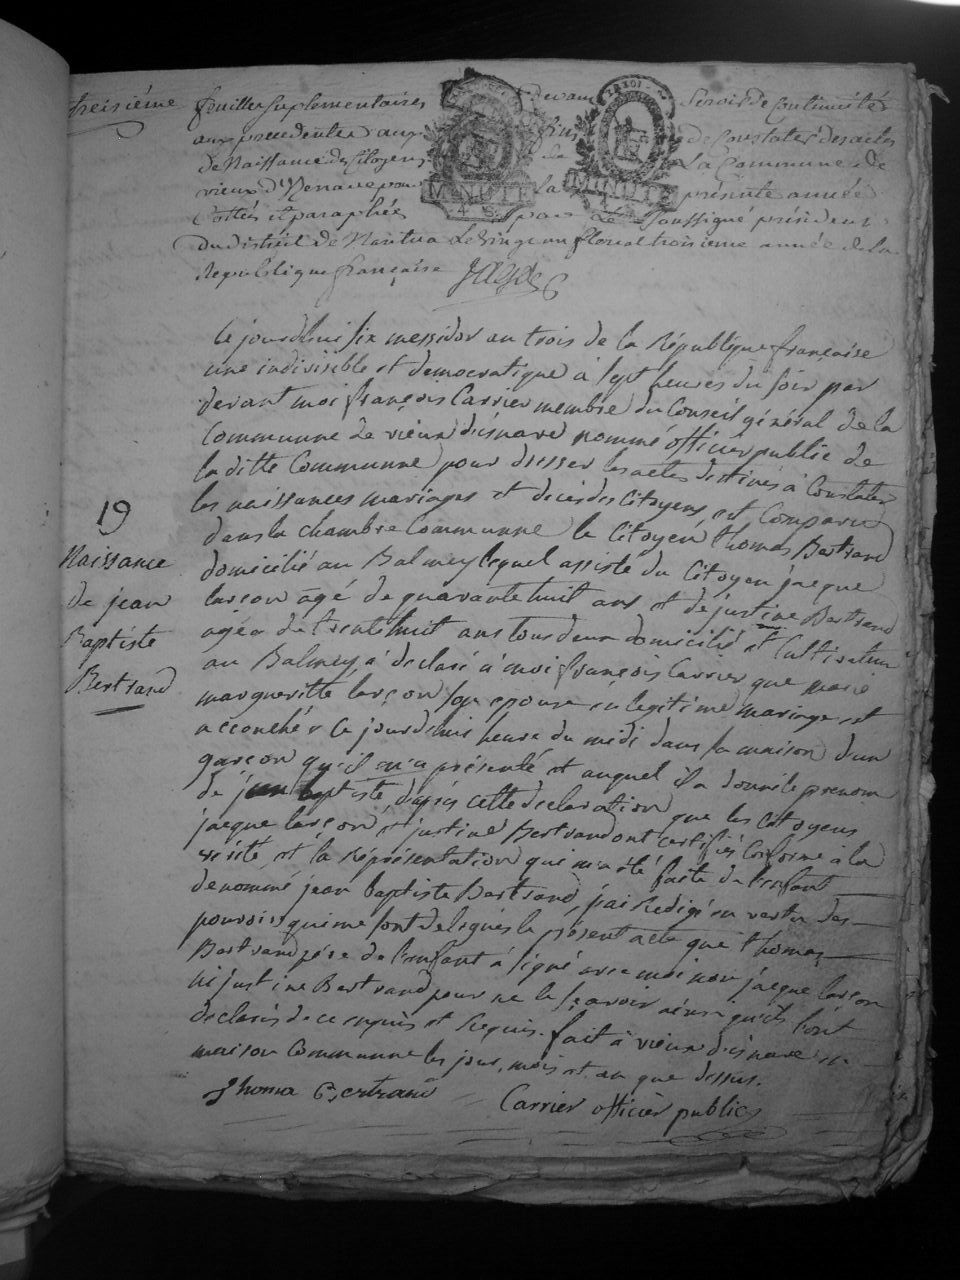 treisiéme
feuille suplementaires devant servir de Continuité
aux precedentes aux fins de Constater des actes
de Naissance des Citoyens de la Commune de
vieux D'Isenave pour la présente année
Cottés et paraphée par Le Soussigné président
Du district de Nantua Le vingt un floreal troisieme année de la
Republique française
MINUTE
MINUTE
Ce jourdhui six messidor an trois de la République française
une indivisible et democratique à sept heures du soir par
devant moi françois Carrier membre du Conseil général de la
Communne de vieux disnave nommé officier public de
la ditte Communne pour dresser les actes destinés à Constater
les naissances mariages et décès des Citoyens est Comparu
dans la chambre Communne le Citoyen thomas Bertrand
domicilié au Balmey lequel assisté du Citoyen jacque
larçon agé de quarante huit ans et de justine Bertrand
agée de trente huit ans tous deux domicilié et Cultivateur
au Balmey à declaré à moi françois Carrier que marie
margueritte larçon son epouse en legitime mariage est
accouchée Ce jourdhui heure du midi dans sa maison dun
garçon qu'il m'a présenté et auquel il a donné le prenom
de jean baptiste, d'après cette declaration que les Citoyens
jacque larçon et justine Bertrand ont certifiés Conforme à la
vérité et la Réprésentation qui m'a été faite de l'enfant
denommé jean baptiste Bertrand, j'ai Rédigé en vertu des
pouvoirs qui me sont délégués le présent acte que thomas
Bertrand père de l'enfant à signé avec moi non jacque larçon
ni justine Bertrand pour ne le sçavoir ainsi qu'ils l'ont
declaré de ce enquis et Requis. fait à vieux disnave en
maison Communne les jour, mois et an que dessus.
Thoma Bertrand Carrier officier public
19
Naissance
de jean
Baptiste
Bertrand